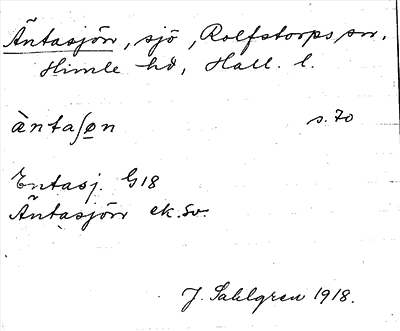 Äntasjön, sjö, Rolfstorps sn.
Himle hd, Hall. l.
àntaʃo̲n s. 70
Entasj. G18
Äntasjön ek.Sv.
J. Sahlgren 1918.